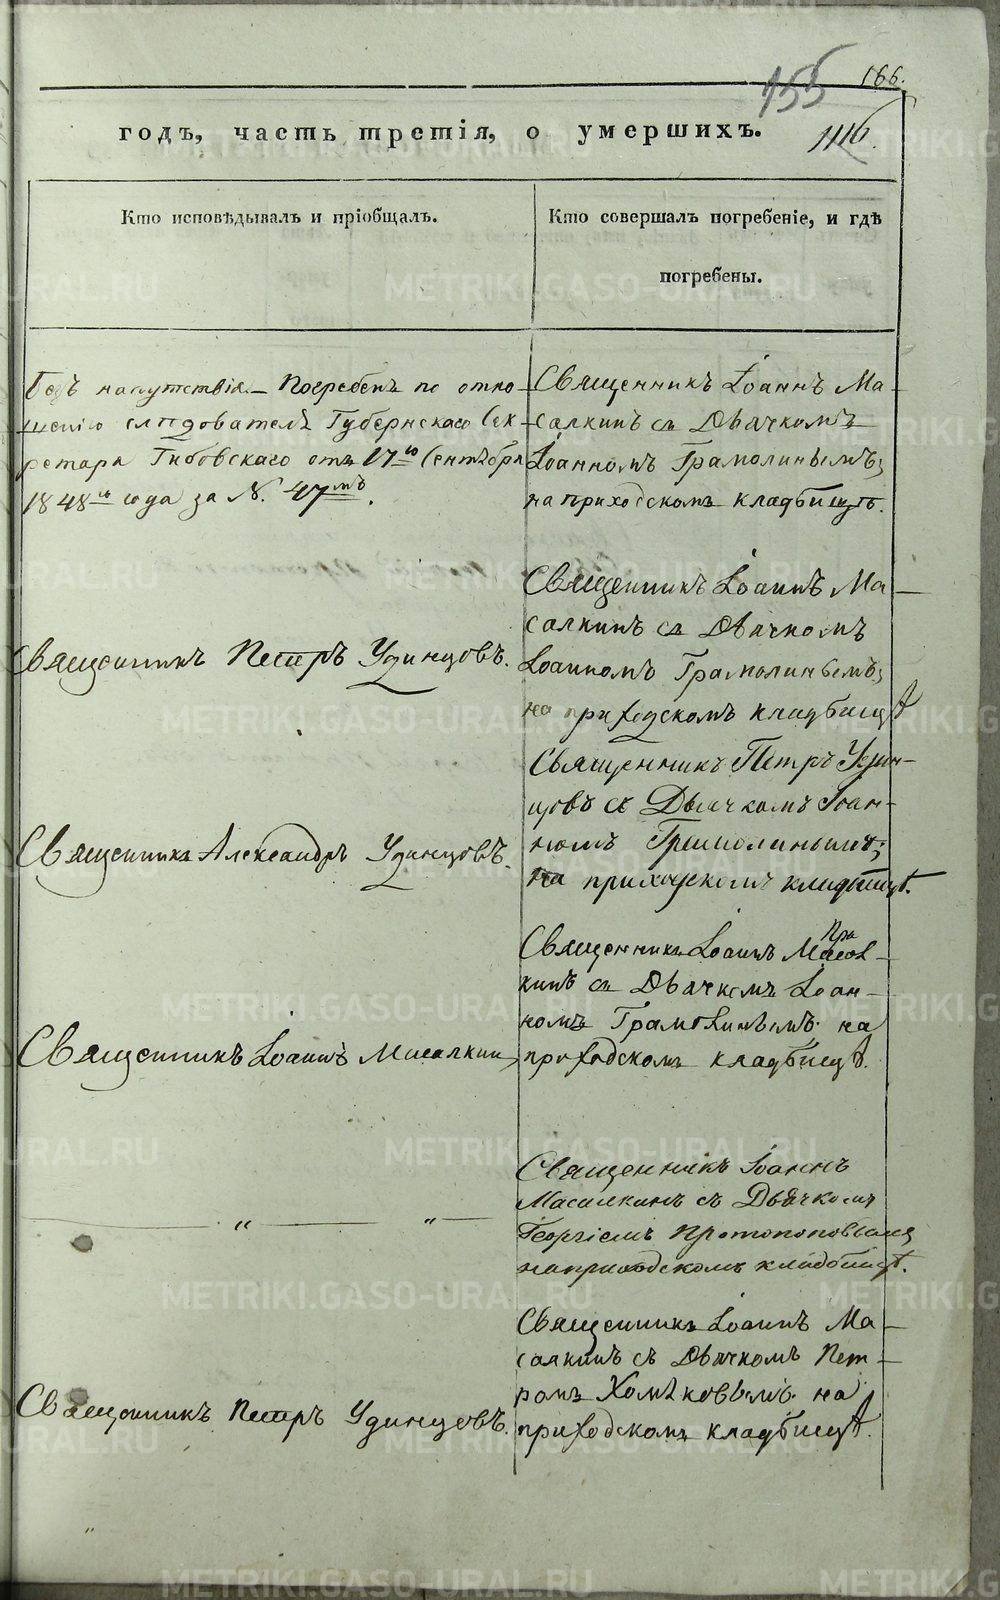 155
166.
1116.
годъ, часть третія, о умершихъ.
Кто исповѣдывалъ и пріобщалъ.
Кто совершалъ погребеніе, и гдѣ
погребены.
Безъ напутствія. Погребенъ по отно-
шенію слѣдователя Губернскаго Сек-
ретаря Гибовскаго отъ 17го Сентября
1848го года за №. 47мъ.
Священникъ Іоаннъ Ма-
салкинъ съ Дьячкомъ
Іоанномъ Грамолинымъ;
на приходскомъ кладбищѣ.
Священникъ Петръ Удинцовъ.
Священникъ Іоаннъ Ма-
салкинъ съ Дьячкомъ
Іоанномъ Грамолинымъ;
на приходскомъ кладбищѣ
Священникъ Александръ Удинцовъ.
Священникъ Петръ Удин-
цовъ съ Дьячкомъ Іоан-
номъ Грамолинымъ;
на приходскомъ кладбищѣ.
Священникъ Іоаннъ Масалкинъ
Священникъ Іоаннъ Масал-
кинъ съ Дьячкомъ Іоан-
номъ Грамолинымъ на
приходскомъ кладбищѣ.
— " — " —
Священникъ Іоаннъ
Масалкинъ съ Дьячкомъ
Георгіемъ Протопоповымъ
на приходскомъ кладбищѣ.
Священникъ Петръ Удинцовъ.
Священникъ Іоаннъ Ма-
салкинъ съ Дьячкомъ Пет-
ромъ Хомяковымъ на
приходскомъ кладбищѣ.
METRIKI.GASO-URAL.RU